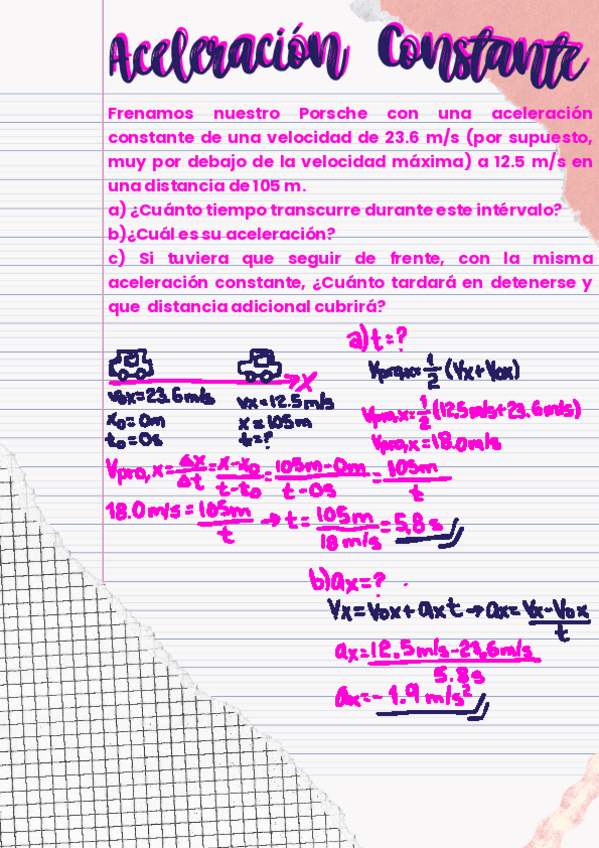 Aceleración Constante
Frenamos nuestro Porsche con una aceleración
constante de una velocidad de 23.6 m/s (por supuesto,
muy por debajo de la velocidad máxima) a 12.5 m/s en
una distancia de 105 m.
a) ¿Cuánto tiempo transcurre durante este intérvalo?
b)¿Cuál es su aceleración?
c) Si tuviera que seguir de frente, con la misma
aceleración constante, ¿Cuánto tardará en detenerse y
que distancia adicional cubrirá?
a) t=?
Vpro,x=1/2 (Vx+Vox)
X
Vox=23.6m/s
x0=0m
t0=0s
Vx=12.5m/s
x=105m
t=?
Vpro,x=1/2 (12.5m/s+23.6m/s)
Vpro,x=18.0m/s
Vpro,x=Δx/Δt=x-x0/t-t0=105m-0m/t-0s=105m/t
18.0m/s=105m/t → t=105m/18m/s=5.8s
b) ax=?
Vx=Vox+axt → ax=Vx-Vox/t
ax=12.5m/s-23.6m/s/5.8s
ax=-1.9m/s²